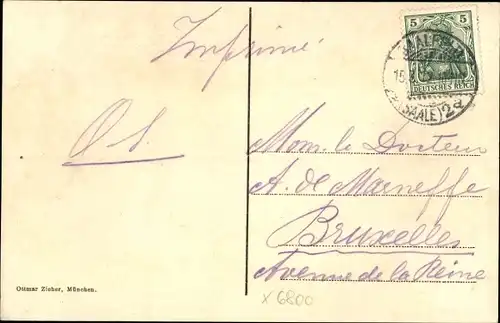 Imprimé
5 5
DEUTSCHES REICH
(SAALE) 2a
O. S.
Mons. le Docteur
A. de Marneffe
Bruxelles
Avenue de la Reine
Ottmar Zieher, München.
x 6800